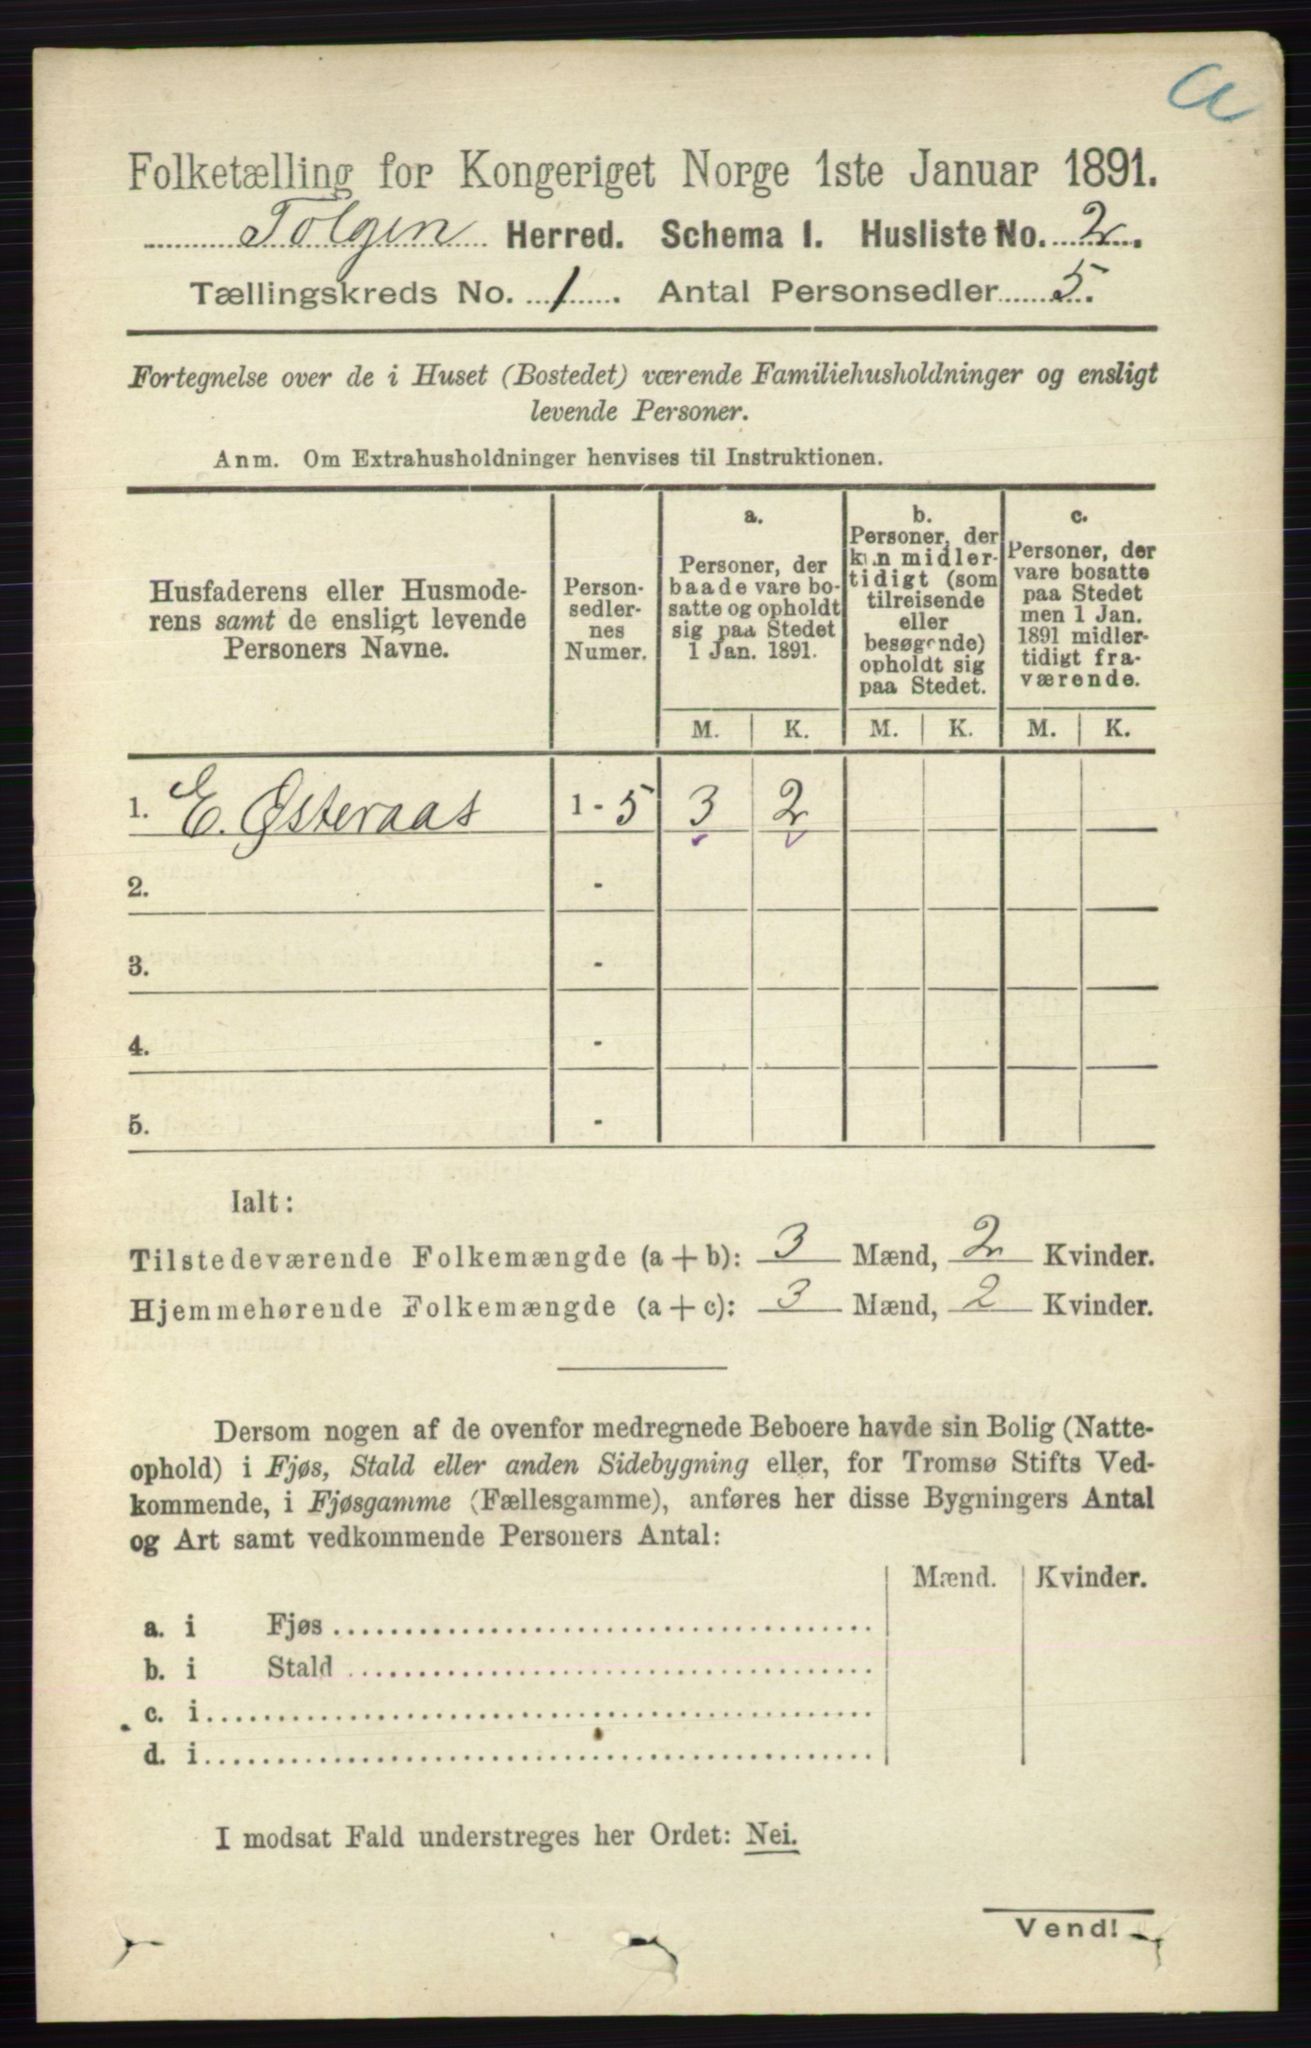 a
Folketælling for Kongeriget Norge 1ste Januar 1891.
Tolgen Herred. Schema I. Husliste No. 2.
Tællingskreds No. 1. Antal Personsedler 5.
Fortegnelse over de i Huset (Bostedet) værende Familiehusholdninger og ensligt
levende Personer.
Anm. Om Extrahusholdninger henvises til Instruktionen.
Husfaderens eller Husmode-
rens samt de ensligt levende
Personers Navne.
Person-
sedler-
nes
Numer.
a.
Personer, der
baade vare bo-
satte og opholdt
sig paa Stedet
1 Jan. 1891.
b.
Personer, der
kun midler-
tidigt (som
tilreisende
eller
besøgende)
opholdt sig
paa Stedet.
c.
Personer, der
vare bosatte
paa Stedet
men 1 Jan.
1891 midler-
tidigt fra-
værende.
M. K. M. K. M. K.
1. E. Østeraas 1 - 5 3 2
2. -
3. -
4. -
5. -
Ialt:
Tilstedeværende Folkemængde (a + b): 3 Mænd, 2 Kvinder.
Hjemmehørende Folkemængde (a + c): 3 Mænd, 2 Kvinder.
Dersom nogen af de ovenfor medregnede Beboere havde sin Bolig (Natte-
ophold) i Fjøs, Stald eller anden Sidebygning eller, for Tromsø Stifts Ved-
kommende, i Fjøsgamme (Fællesgamme), anføres her disse Bygningers Antal
og Art samt vedkommende Personers Antal:
Mænd. Kvinder.
a. i Fjøs
b. i Stald
c. i
d. i
I modsat Fald understreges her Ordet: Nei.
Vend!